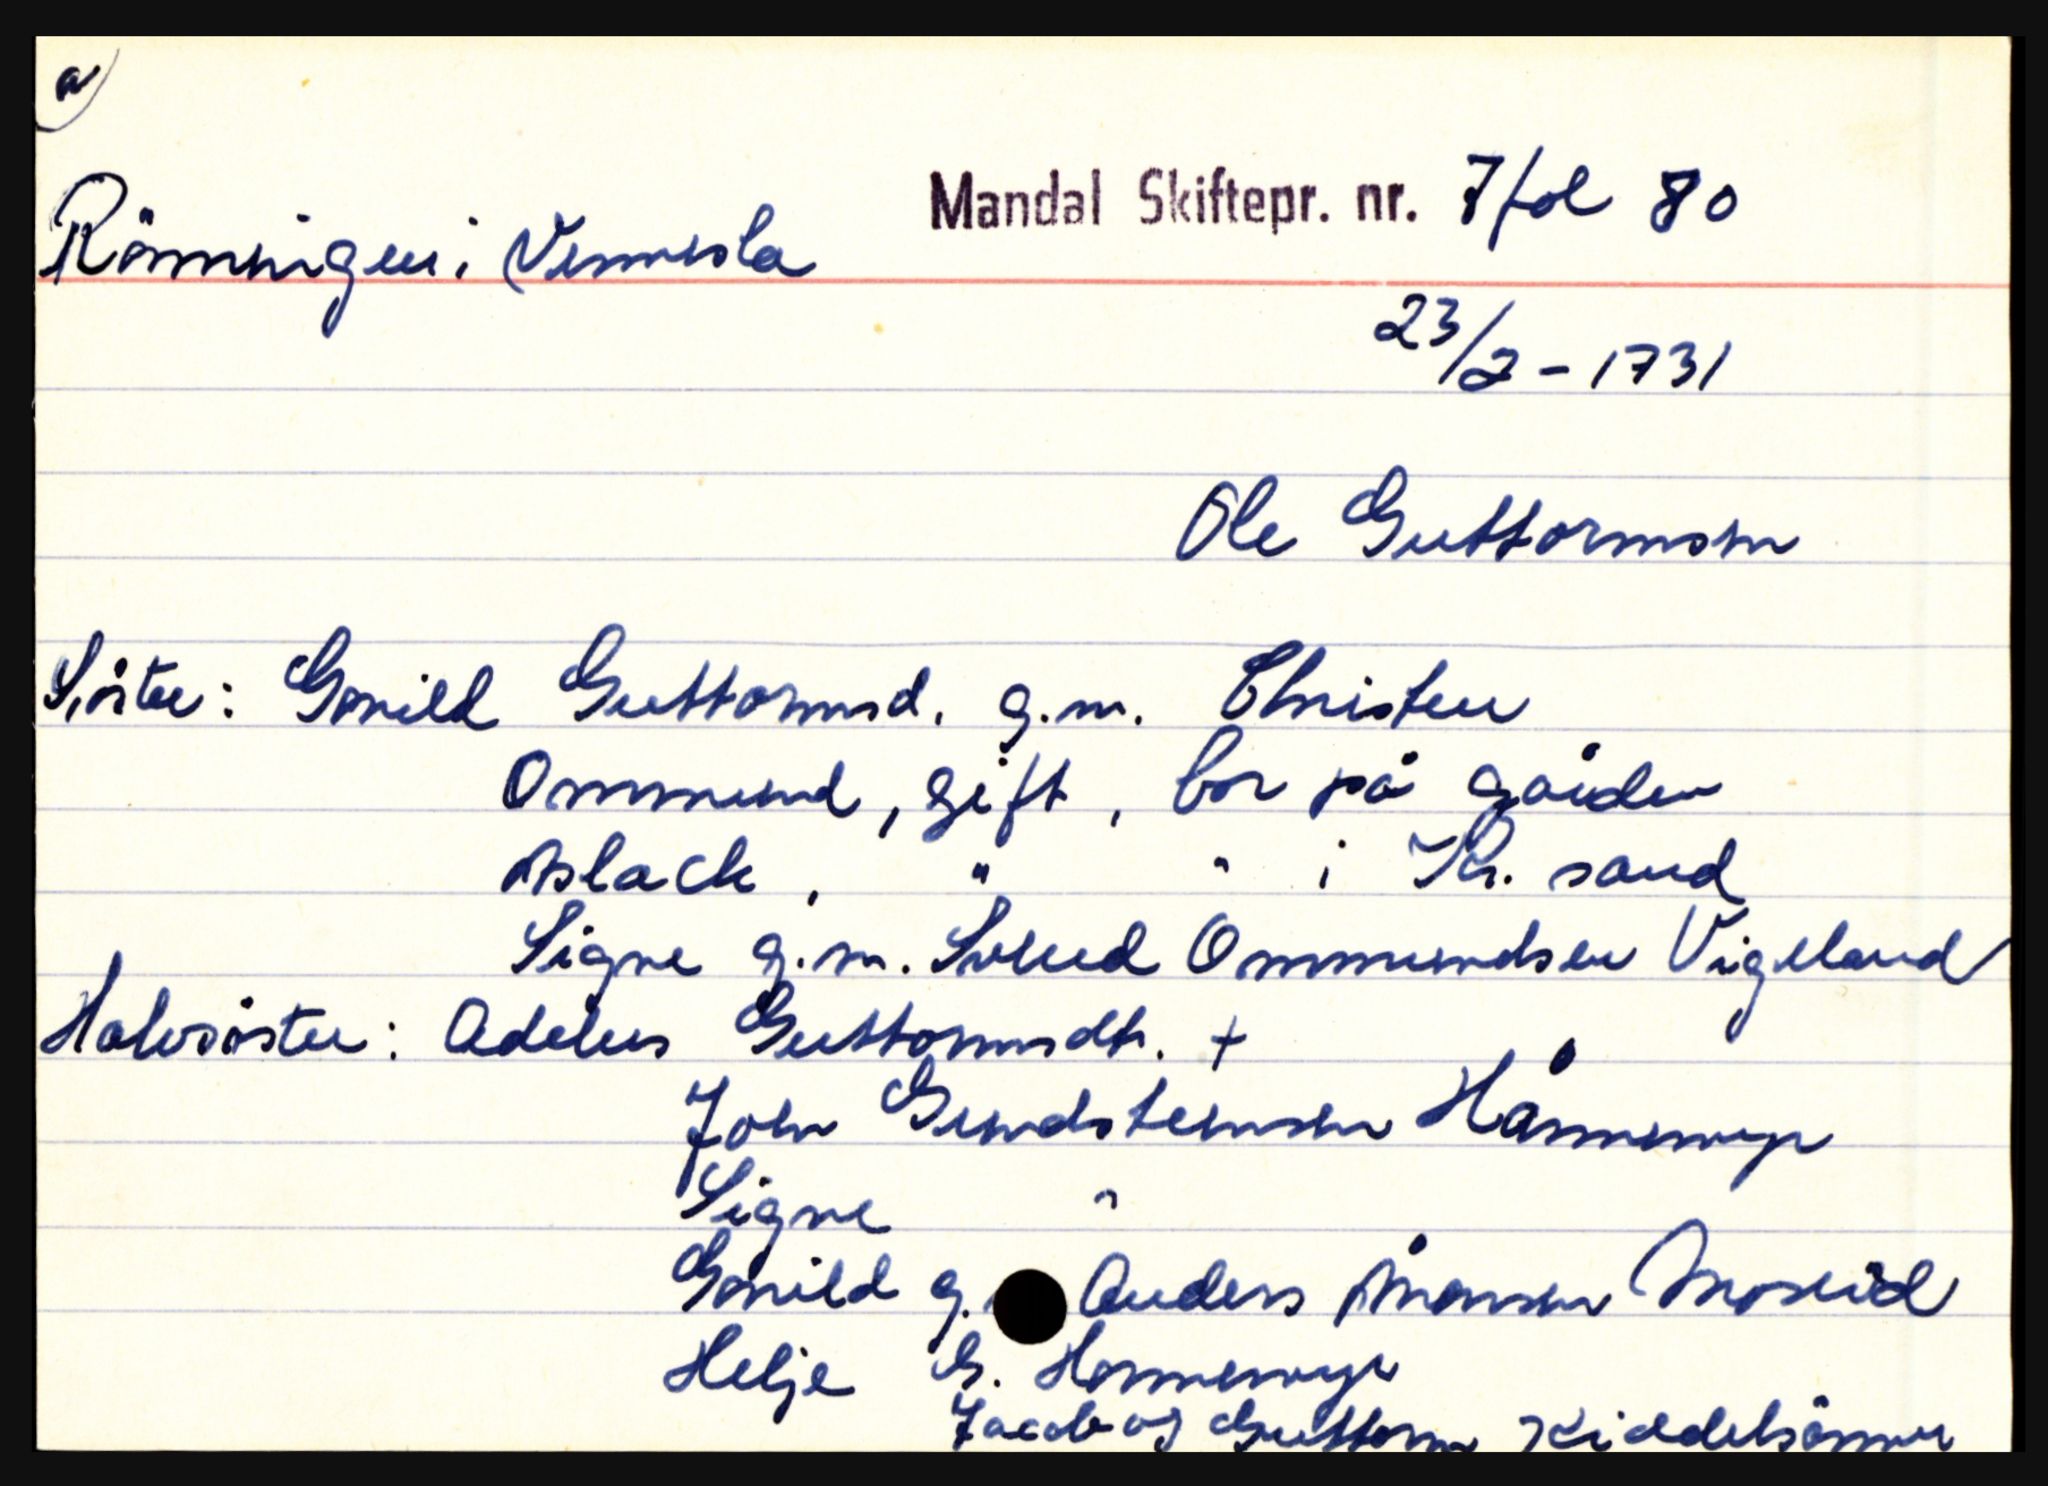 a
Mandal Skiftepr. nr. 7 fol 80
Rönningen i Vennesla
23/2 - 1731
Ole Guttormsen
Söster: Gonild Guttormsd. g.m. Christen
Ommund, gift, bor på gården
Aslack, " " i Kr. sand
Signe g.m. Svend Ommundsen Vigeland
Halvsöster: Adelus Guttormsdtr. +
John Gundsteinsen Hånnemyr
Signe "
Gonild g. Anders Monsen Moseid
Helje G. Honnemyr
Jacob og Guttorm Kiddelsönner